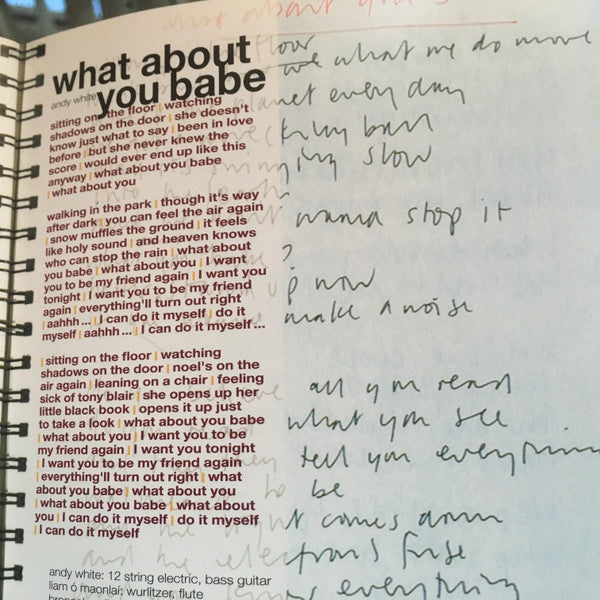 what about
andy white you babe
sitting on the floor | watching
shadows on the door | she doesn't
know just what to say | been in love
before | but she never knew the
score | would ever end up like this
anyway | what about you babe
| what about you
walking in the park | though it's way
after dark | you can feel the air again
| snow muffles the ground | it feels
like holy sound | and heaven knows
who can stop the rain | what about
you babe | what about you | I want
you to be my friend again | I want you
tonight | I want you to be my friend
again | everything'll turn out right
| aahhh ... | I can do it myself | do it
myself | aahhh ... | I can do it myself ...
| sitting on the floor | watching
shadows on the door | noel's on the
air again | leaning on a chair | feeling
sick of tony blair | she opens up her
little black book | opens it up just
to take a look | what about you babe
| what about you | I want you to be
my friend again | I want you tonight
| I want you to be my friend again
| everything'll turn out right | what
about you babe | what about you
| what about you babe | what about
you | I can do it myself | do it myself
| I can do it myself
andy white: 12 string electric, bass guitar
liam ó maonlai: wurlitzer, flute
what about you
floor
what we do move
planet every day
ball
slow
wanna stop it
?
up now
make a noise
all you read
what you see
tell you everything
to be
comes down
and the electrons fuse
everything